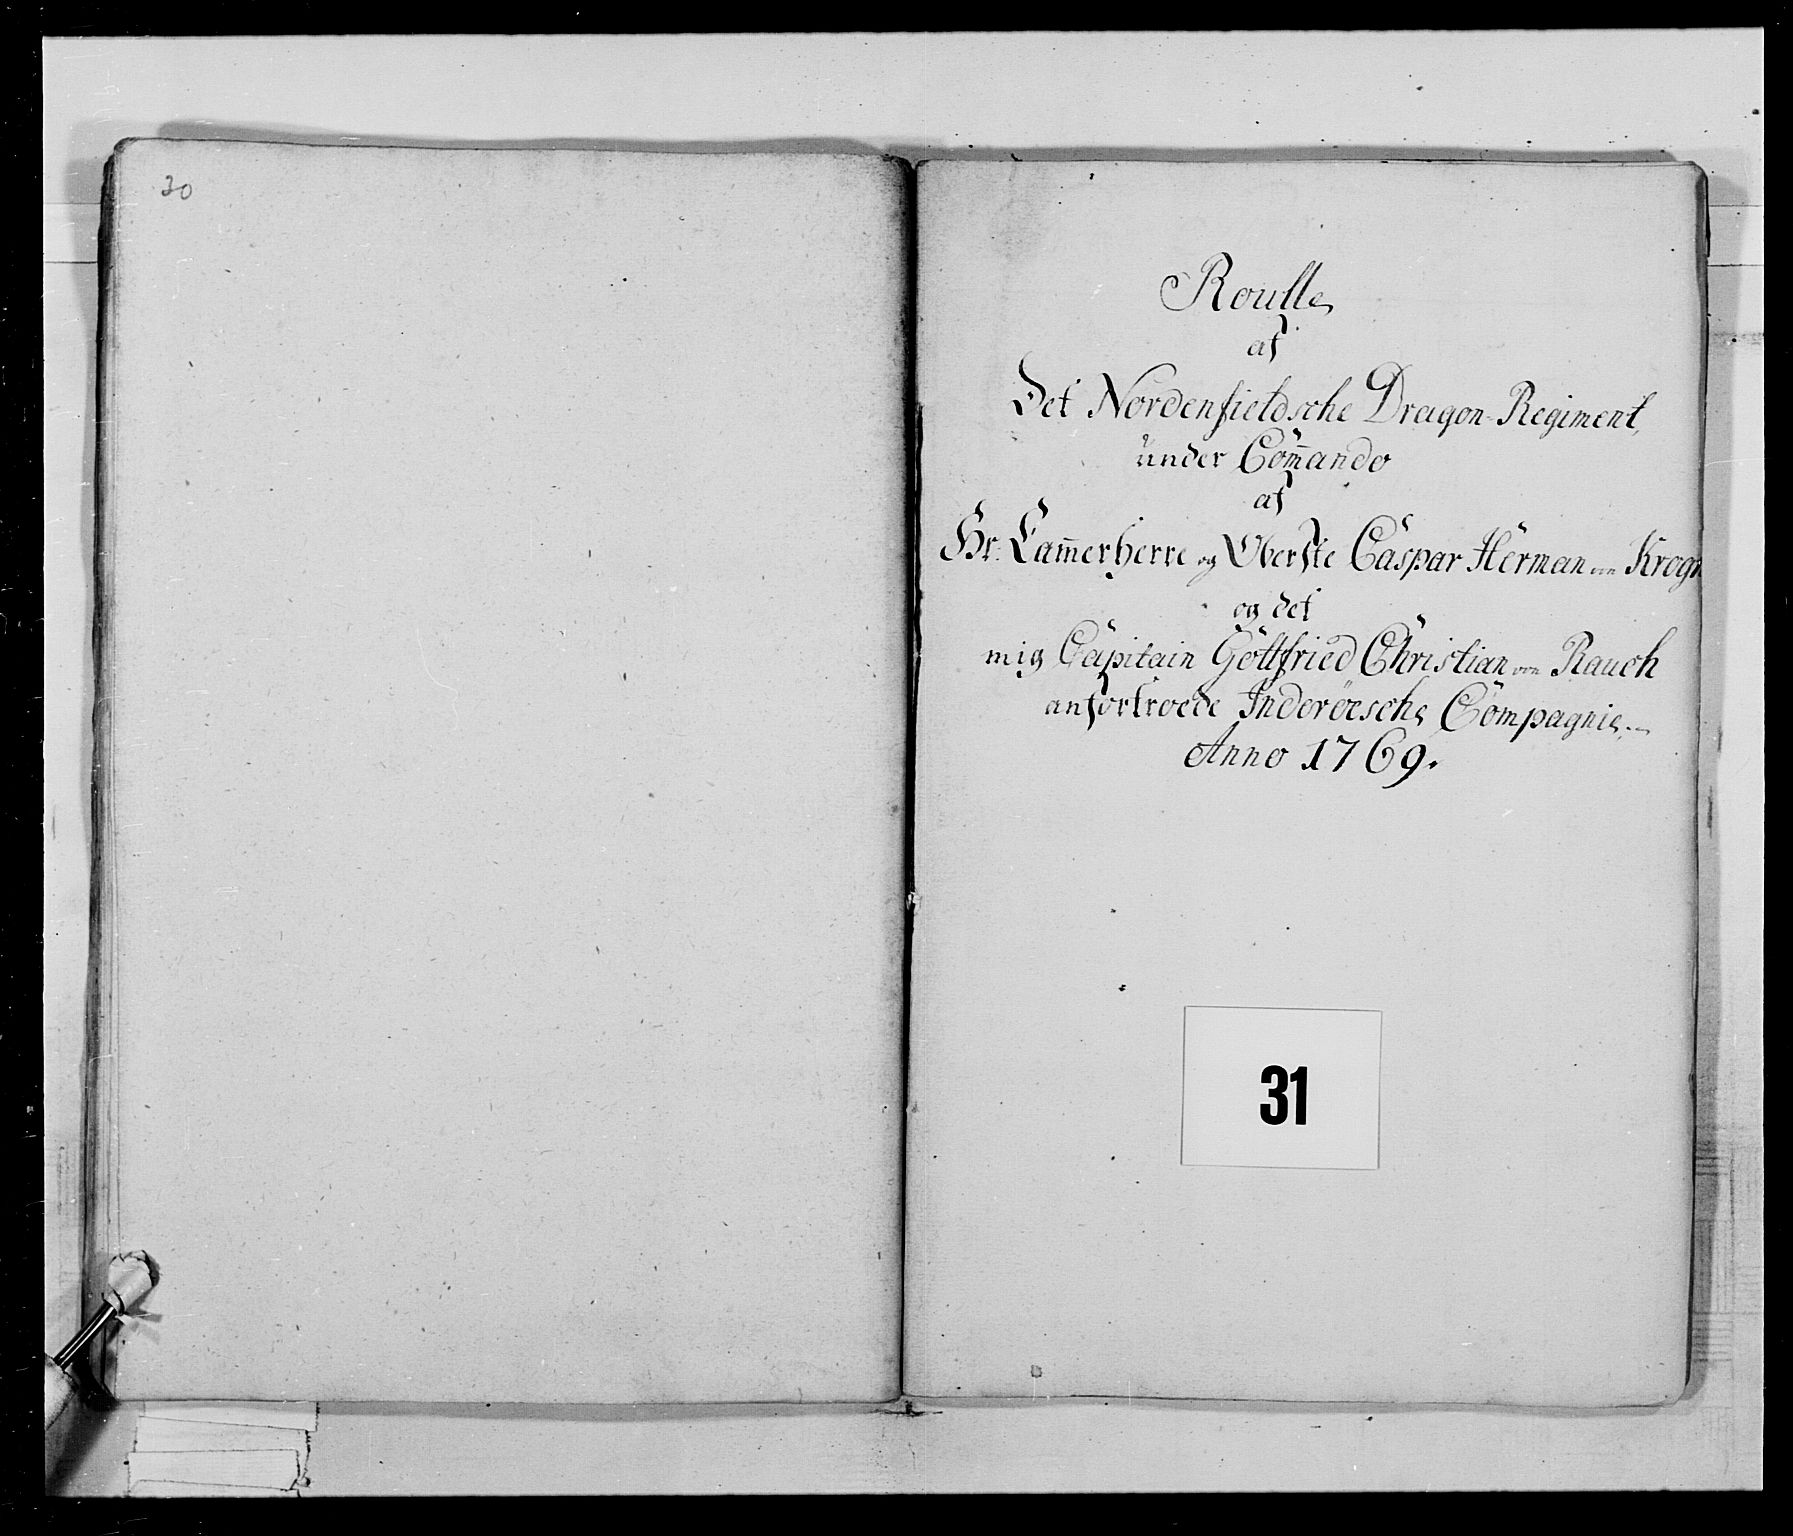 30
Roulle
af
Det Nordenfieldsche Dragon-Regiment,
under Com̄ando
af
Hr. Cam̄erherre og Oberste Caspar Herman von Krogh
og det
mig Capitain Gottfried Christian von Rauch
anfortroede Inderöesche Compagnie.
Anno 1769.
31